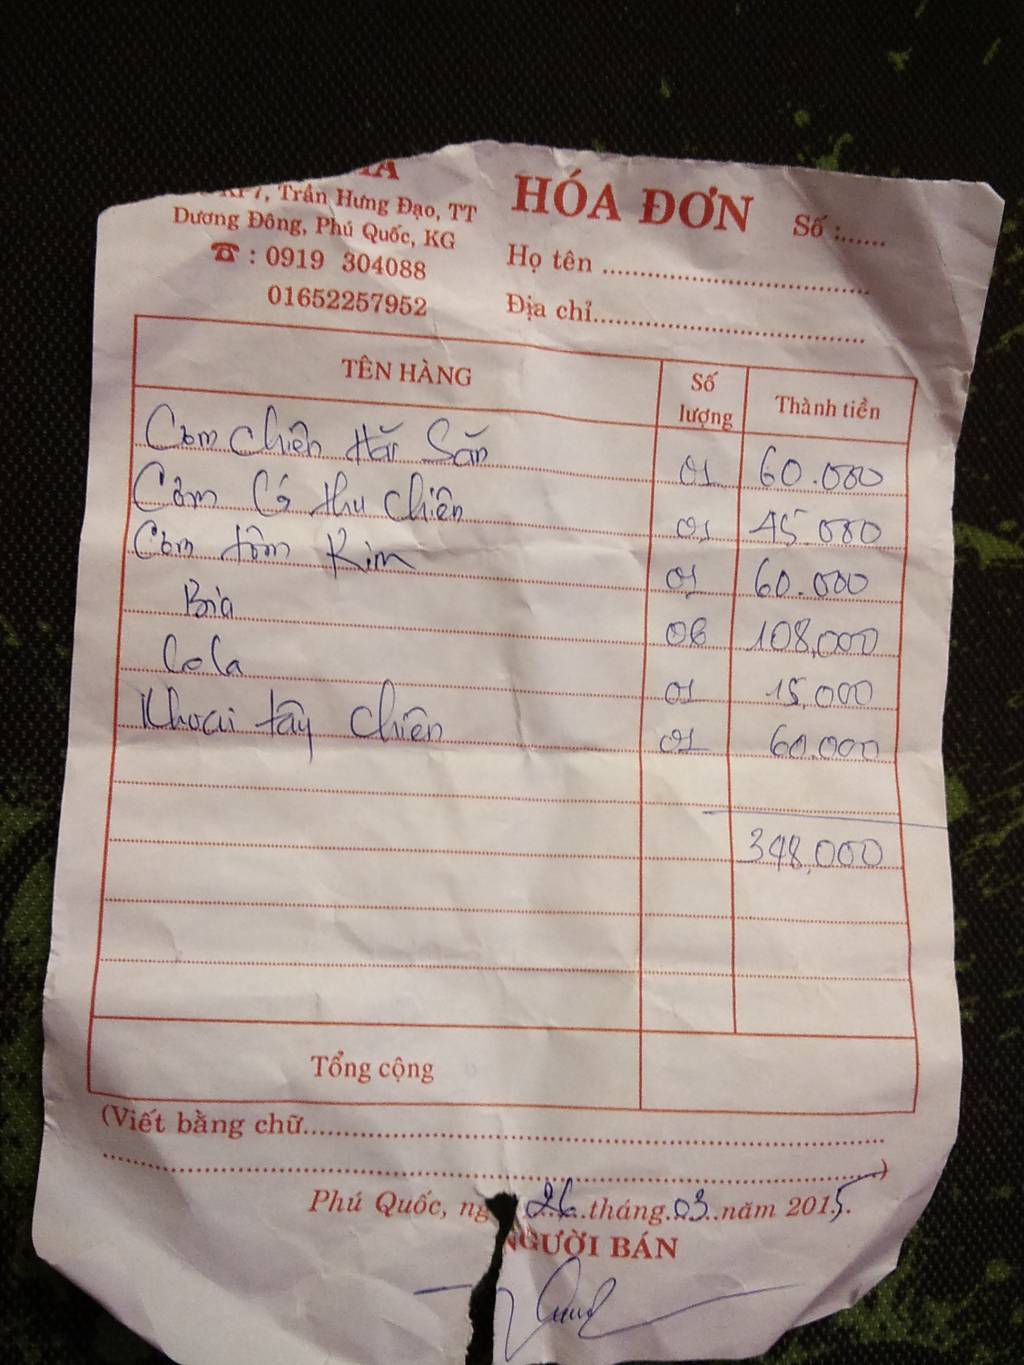 KP7, Trần Hưng Đạo, TT
Dương Đông, Phú Quốc, KG
☎ : 0919 304088
01652257952
HÓA ĐƠN Số :......
Họ tên ..............................
Địa chỉ..............................
TÊN HÀNG Số lượng Thành tiền
Cơm chiên Hải Sản 01 60.000
Cơm Cá thu chiên 01 45.000
Cơm tôm Rim 01 60.000
Bia 06 108,000
CoCa 01 15,000
Khoai tây chiên 01 60.000
348,000
Tổng cộng
(Viết bằng chữ..............................
..............................)
Phú Quốc, ng 26 tháng 03 năm 2015.
NGƯỜI BÁN